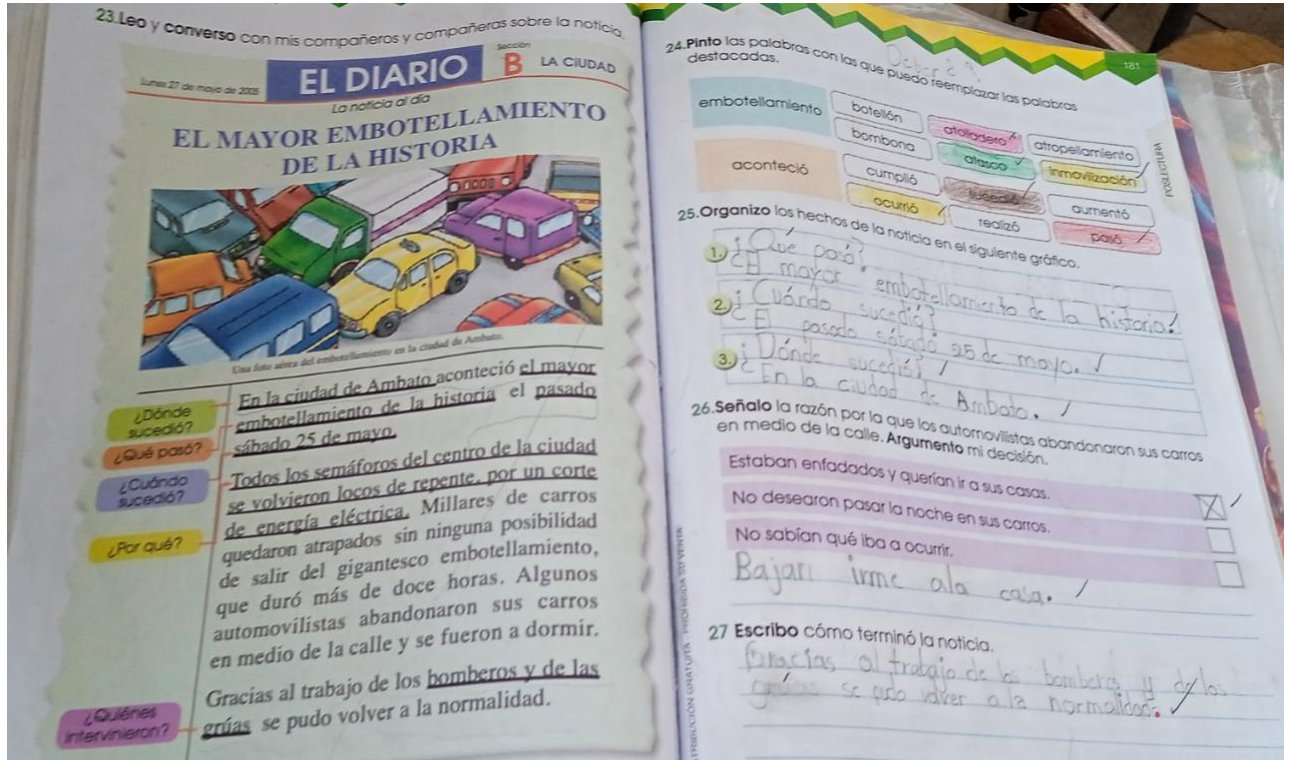 23.Leo y converso con mis compañeros y compañeras sobre la noticia.
Lunes 27 de mayo de 2005
EL DIARIO
Sección
B
LA CIUDAD
La noticia al día
EL MAYOR EMBOTELLAMIENTO
DE LA HISTORIA
Una foto aérea del embotellamiento en la ciudad de Ambato.
¿Dónde
sucedió?
¿Qué pasó?
¿Cuándo
sucedió?
¿Por qué?
¿Quiénes
intervinieron?
En la ciudad de Ambato aconteció el mayor
embotellamiento de la historia el pasado
sábado 25 de mayo.
Todos los semáforos del centro de la ciudad
se volvieron locos de repente, por un corte
de energía eléctrica. Millares de carros
quedaron atrapados sin ninguna posibilidad
de salir del gigantesco embotellamiento,
que duró más de doce horas. Algunos
automovilistas abandonaron sus carros
en medio de la calle y se fueron a dormir.
Gracias al trabajo de los bomberos y de las
grúas se pudo volver a la normalidad.
181
24.Pinto las palabras con las que puedo reemplazar las palabras
destacadas.
embotellamiento
botellón
atolladero
atropellamiento
bombona
atasco
inmovilización
aconteció
cumplió
sucedió
aumentó
ocurrió
realizó
pasó
POSLECTURA
25.Organizo los hechos de la noticia en el siguiente gráfico.
1. ¿Qué pasó?
El mayor embotellamiento de la historia.
2. ¿Cuándo sucedió?
El pasado sábado 25 de mayo.
3. ¿Dónde sucedió?
En la ciudad de Ambato.
26.Señalo la razón por la que los automovilistas abandonaron sus carros
en medio de la calle. Argumento mi decisión.
Estaban enfadados y querían ir a sus casas.
X
No desearon pasar la noche en sus carros.
No sabían qué iba a ocurrir.
irme ala casa.
27 Escribo cómo terminó la noticia.
Gracias al trabajo de los bomberos y de las
grúas se pudo volver a la normalidad.
DISTRIBUCIÓN GRATUITA - PROHIBIDA SU VENTA